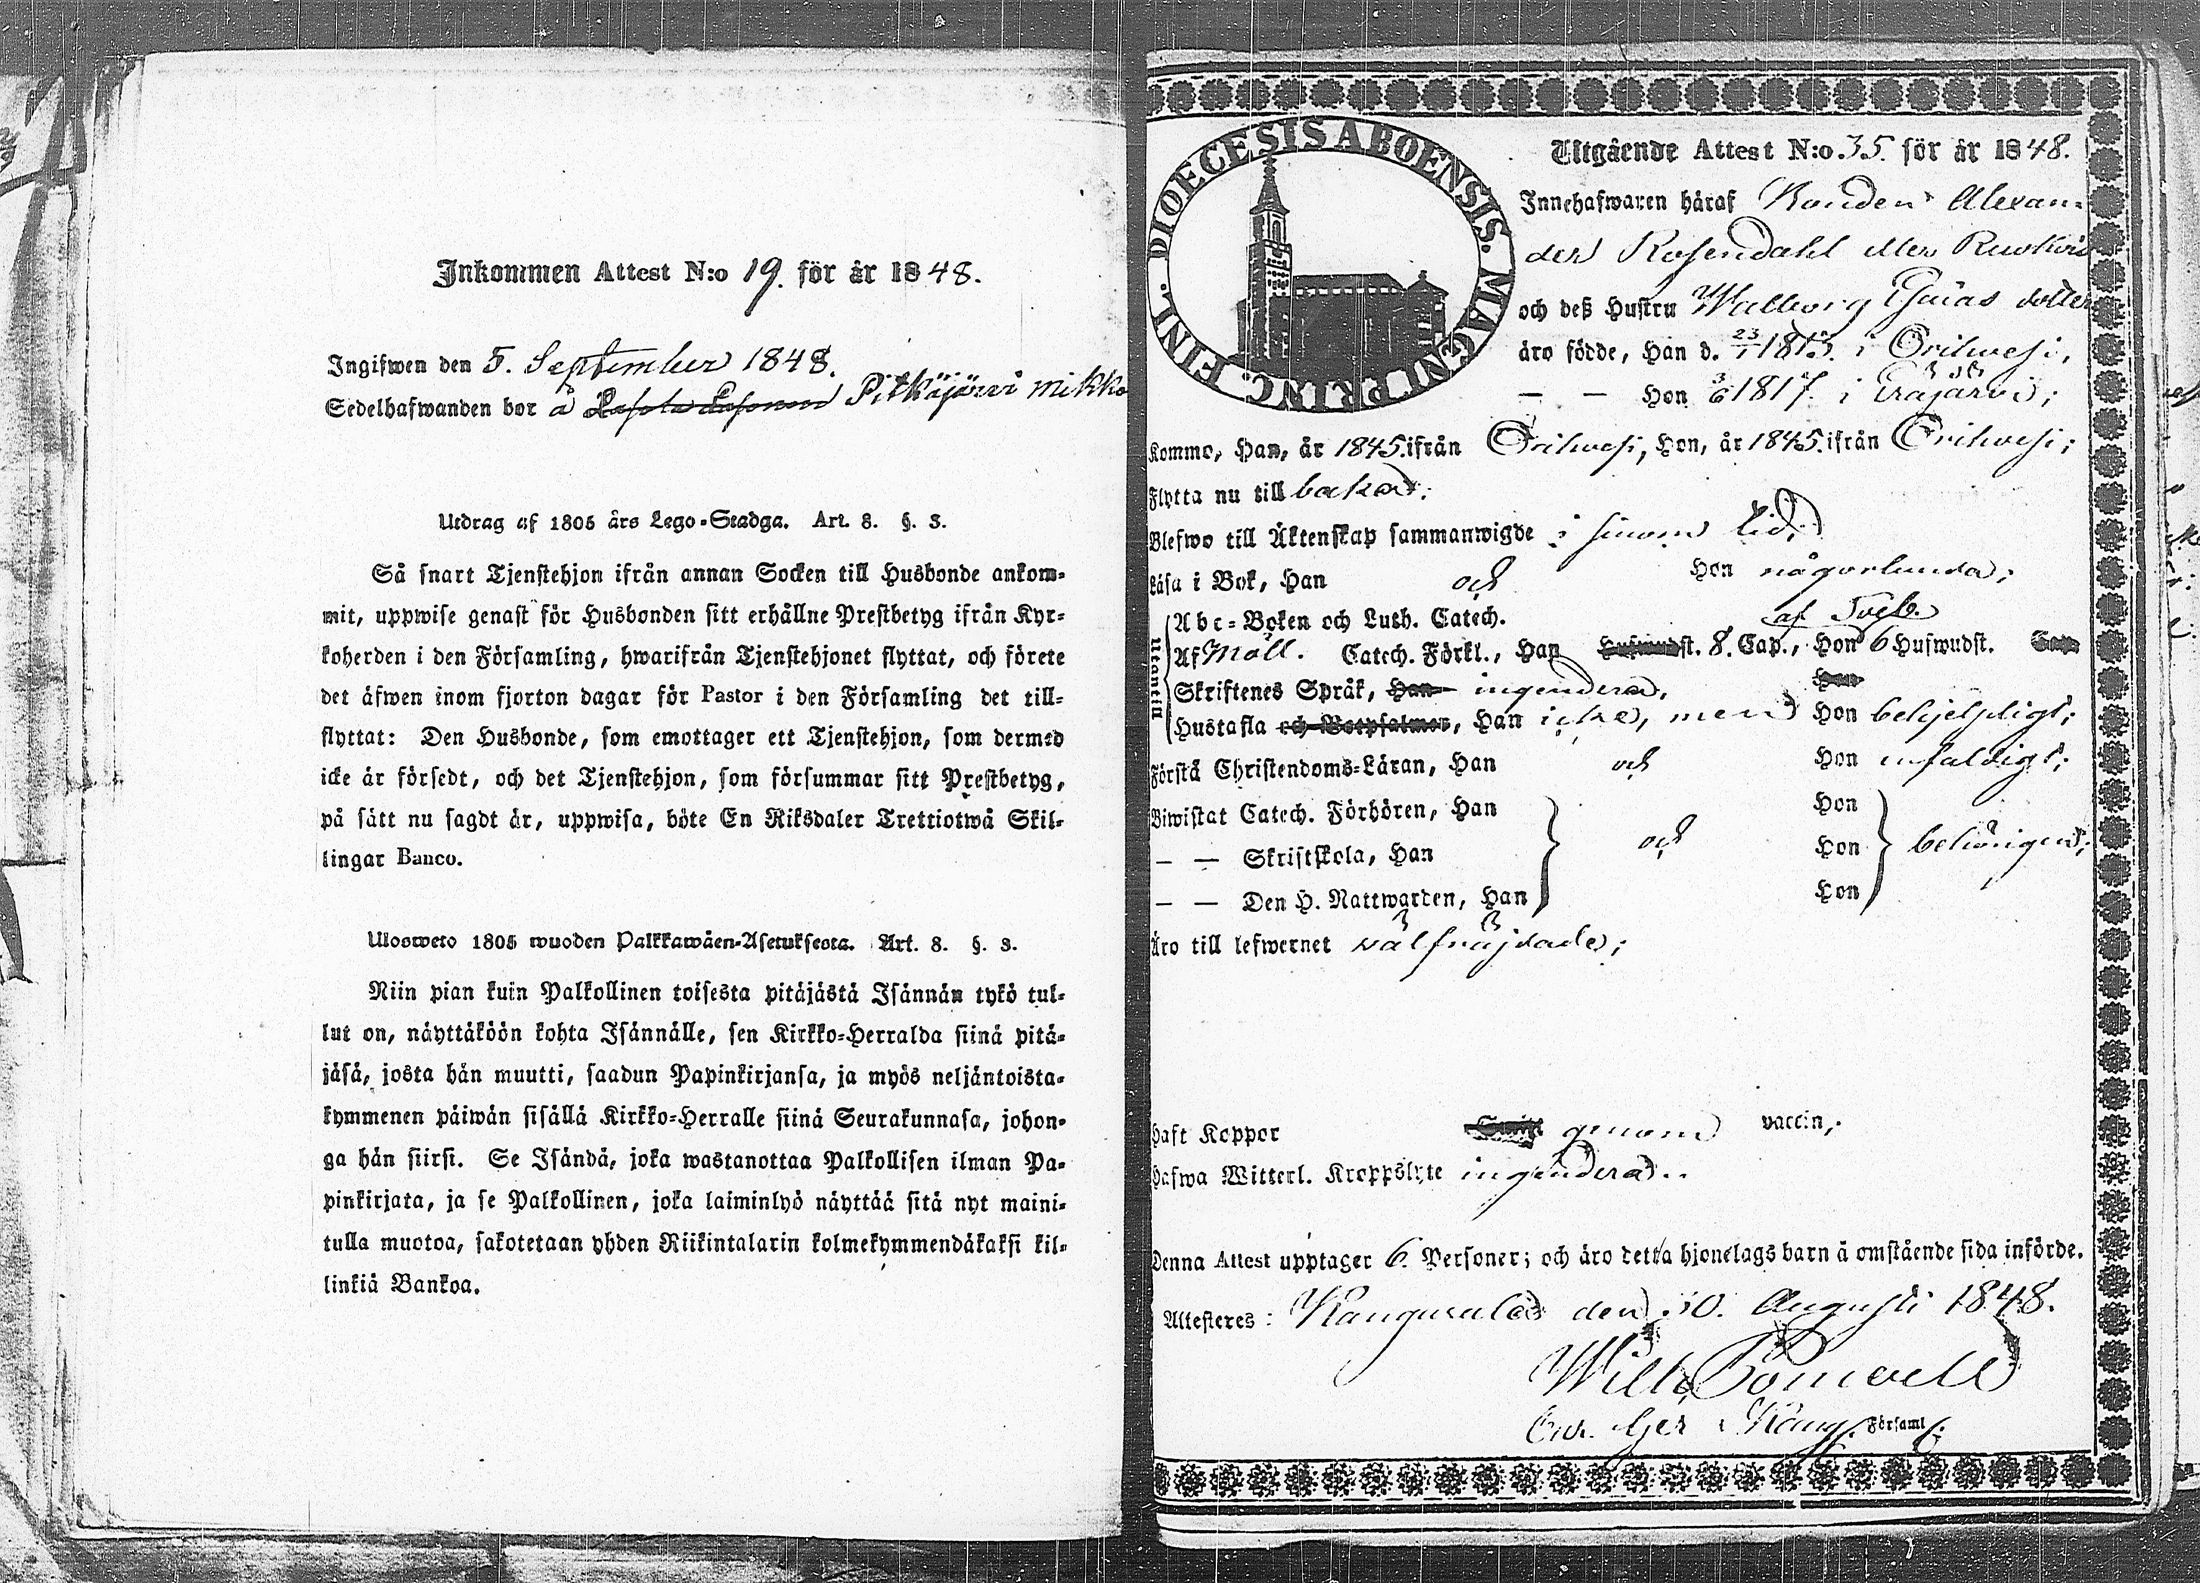 Inkommen Attest N:o 19. för år 1848.
Ingifwen den 5. September 1848.
Sedelhafwanden bor å Pitkäjärvi Mikko
Utdrag af 1805 års Lego-Stadga. Art. 8. §. 3.
Så snart Tjenstehjon ifrån annan Socken till Husbonde ankom-
mit, uppwise genast för Husbonden sitt erhållne Prestbetyg ifrån Kyr-
koherden i den Församling, hwarifrån Tjenstehjonet flyttat, och förete
det äfwen inom fjorton dagar för Pastor i den Församling det till-
flyttat: Den Husbonde, som emottager ett Tjenstehjon, som dermed
icke är försedt, och det Tjenstehjon, som försummar sitt Prestbetyg,
på sätt nu sagdt är, uppwisa, böte En Riksdaler Trettiotwå Skil-
lingar Banco.
Ulosweto 1805 wuoden Palkkawäen-Asetuksesta. Art. 8. §. 3.
Niin pian kuin Palkollinen toisesta pitäjästä Isännän tykö tul-
lut on, näyttäköön kohta Isännälle, sen Kirkko-Herralda siinä pitä-
jäsä, josta hän muutti, saadun Papinkirjansa, ja myös neljäntoista-
kymmenen päiwän sisällä Kirkko-Herralle siinä Seurakunnasa, johon-
ga hän siirsi. Se Isändä, joka wastanottaa Palkollisen ilman Pa-
pinkirjata, ja se Palkollinen, joka laiminlyö näyttää sitä nyt maini-
tulla muotoa, sakotetaan yhden Riikintalarin kolmekymmendäkaksi kil-
linkiä Bankoa.
DIOECESIS ABOENSIS. MAGNI PRINC. FINL.
Utgående Attest N:o 35. för år 1848.
Innehafwaren häraf Bonden Alexan-
der Rosendahl eller
och deß Hustru Walborg dotter
äro födde, Han d. 23/1 1813. i Orihvesi,
— — Hon 3/6 1817. i Eräjärvi;
Kommo, Han, år 1845. ifrån Orihvesi, Hon, år 1845. ifrån Orihvesi;
Flytta nu till baka;
Blefwo till Äktenskap sammanwigde i sinom tid;
Läsa i Bok, Han och Hon någorlunda;
Utantill
Abc-Boken och Luth. Catech. af Sveb.
Af Möll. Catech. Förkl., Han Hufwudst. 8. Cap., Hon 6 Hufwudst. Cap.
Skriftenes Språk, Han ingendera, Hon
Hustafla och Botpsalmer, Han icke, men Hon behjelpligt;
Förstå Christendoms-Läran, Han och Hon enfaldigt;
Biwistat Catech. Förhören, Han Hon
— — Skriftskola, Han och Hon behörigen;
— — Den H. Nattwarden, Han Hon
Äro till lefwernet välfräjdade;
Haft Koppor genom vaccin;
Hafwa Witterl. Kroppslyte ingendera.
Denna Attest upptager 6. Personer; och äro detta hjonelags barn å omstående sida införde.
Attesteres: Kangasala den 30. Augusti 1848.
Wilh.
Församl.